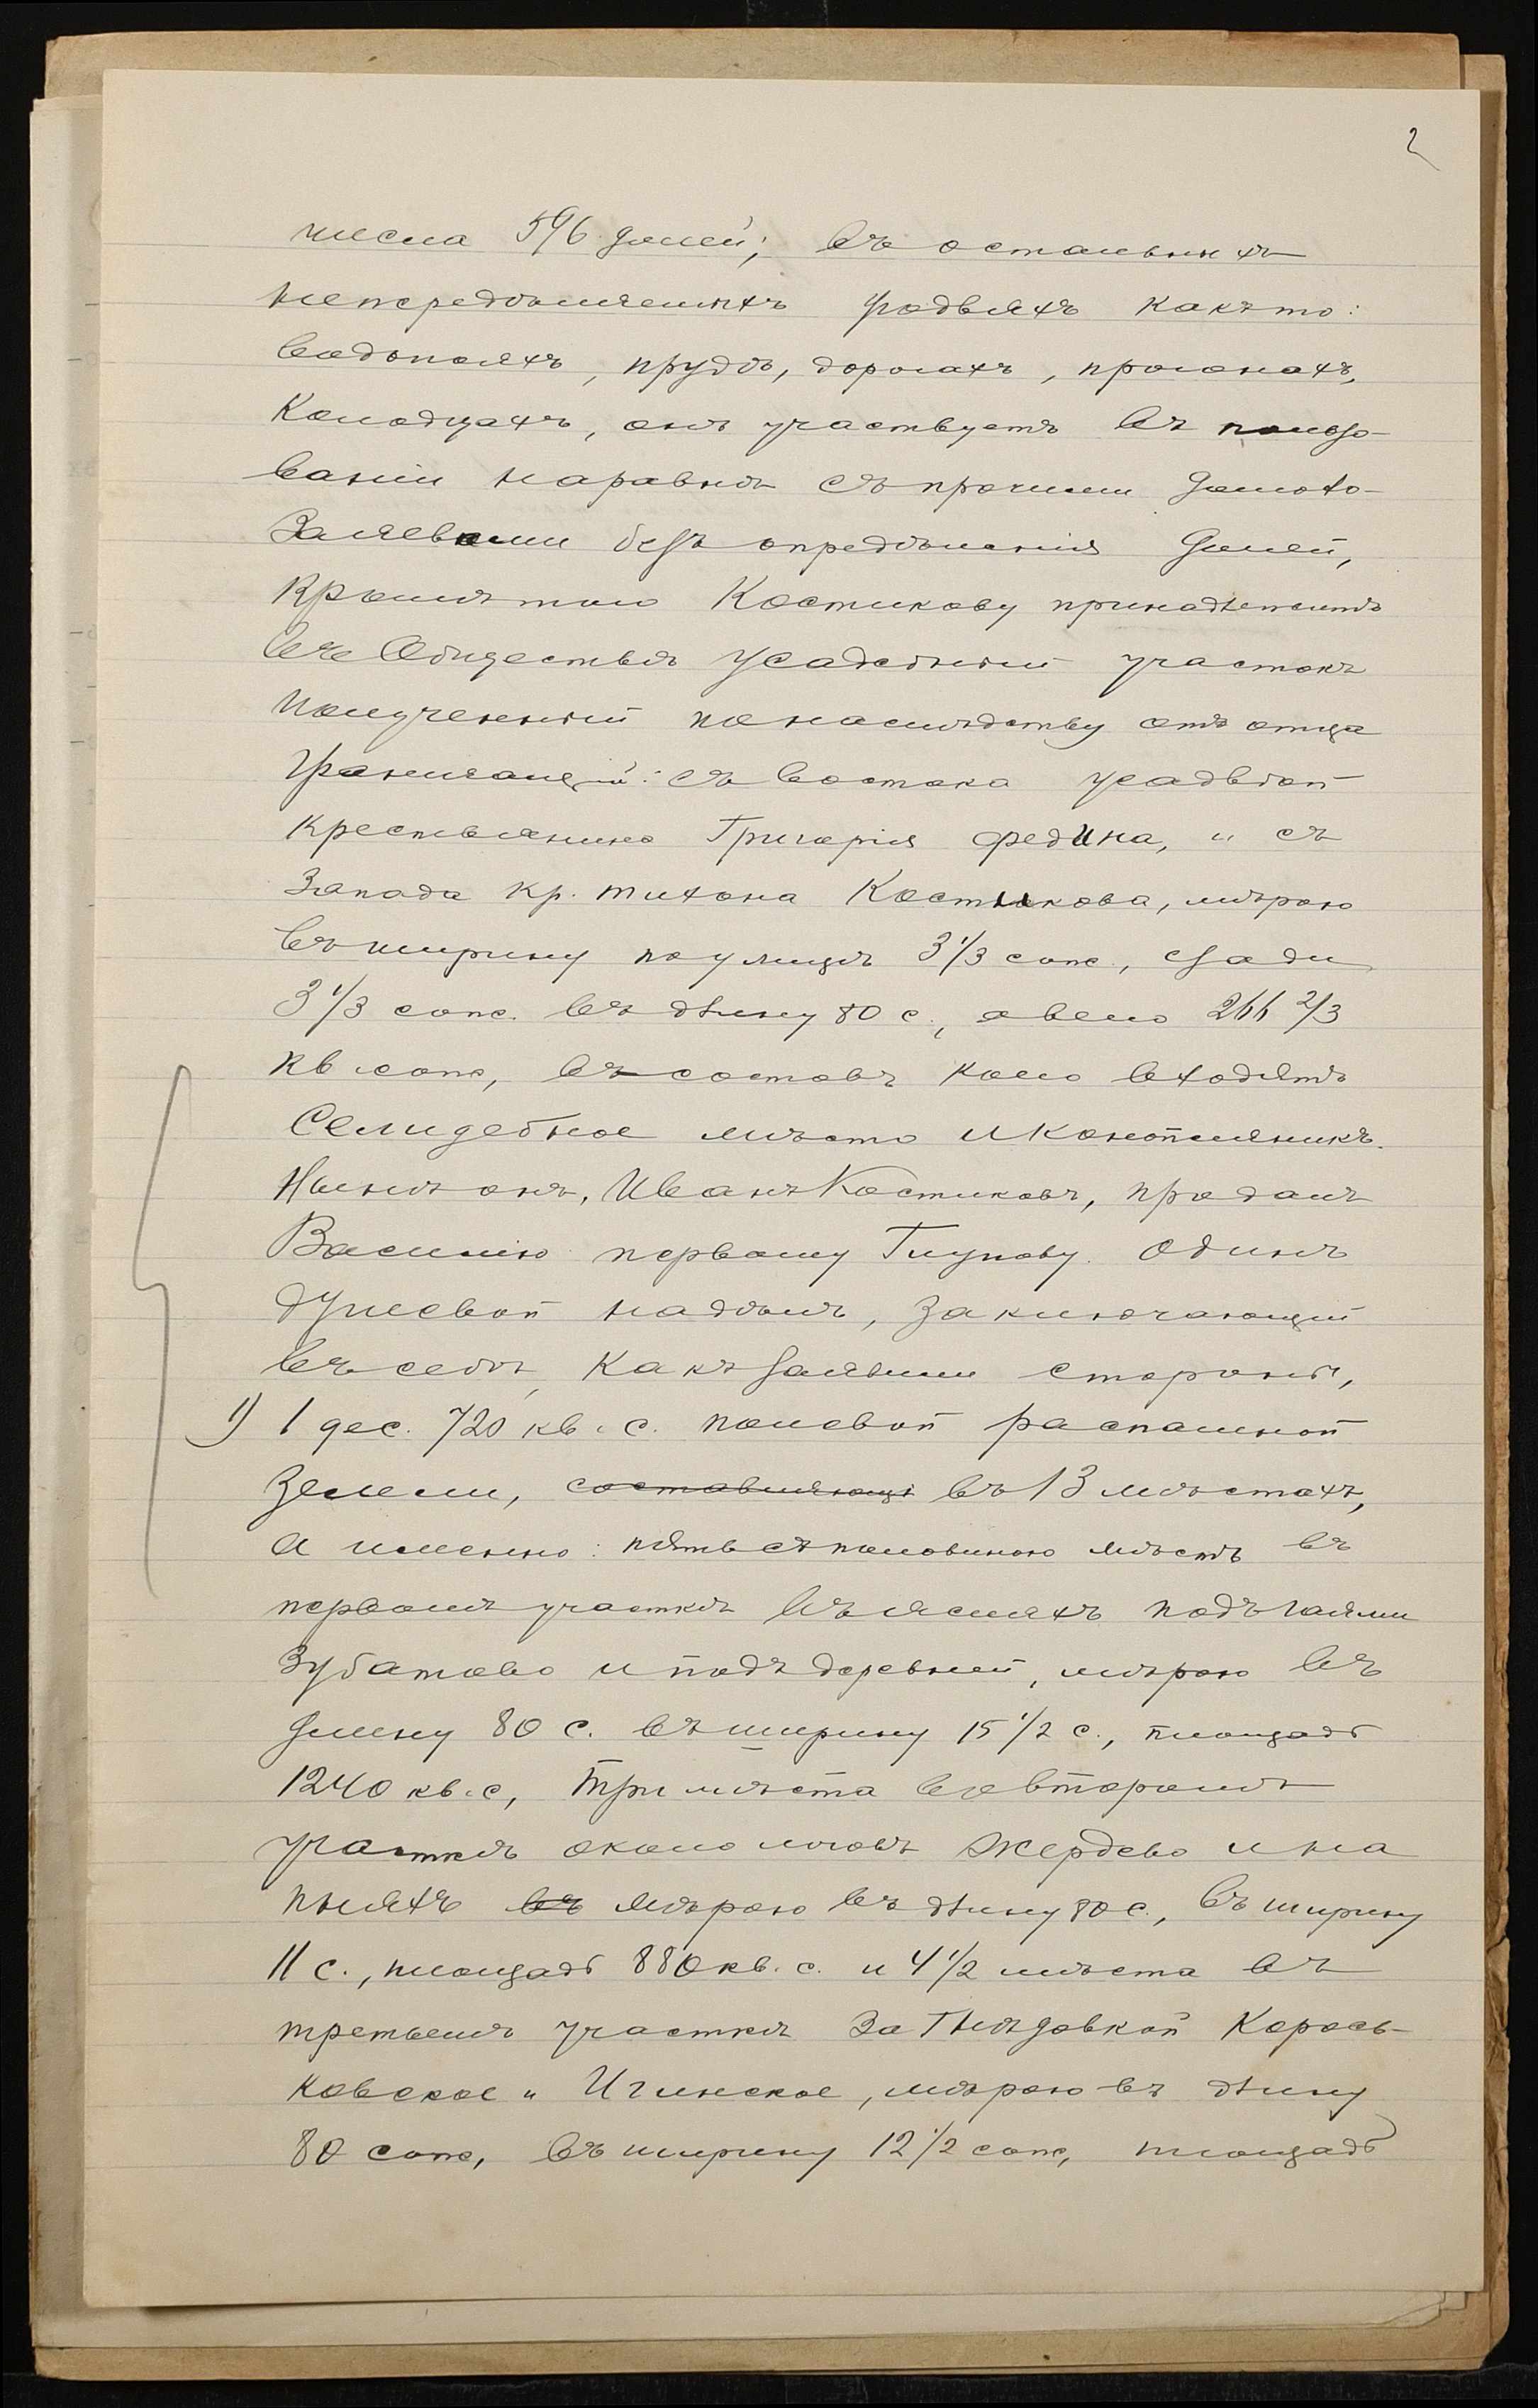 2
числа 596 долей; въ остальныхъ
непередѣляемыхъ угодьяхъ какъ то:
водопояхъ, прудѣ, дорогахъ, прогонахъ,
колодцахъ, онъ участвуетъ въ пользо-
ваніи наравнѣ съ прочими домохо-
зяевами безъ опредѣленія долей,
Кромѣ того Костикову принадлежитъ
въ Обществѣ усадебный участокъ
полученный по наслѣдству отъ отца
граничащій: съ Востока усадьбой
крестьянина Григорія Федина, и съ
Запада кр. Тихона Костикова, мѣрою
въ ширину по улицѣ 3 1/3 саж., сзади
3 1/3 саж. въ длину 80 с., а всего 266 2/3
кв. саж, въ составъ коего входятъ
Селидебное мѣсто и конопляникъ.
Нынѣ онъ, Иванъ Костиковъ, продалъ
Василію первому Глухову. Одинъ
душевой надѣлъ, заключающій
въ себѣ, какъ заявили стороны,
1) 1 дес. 720 кв. с. полевой распашной
Земли, составляющ въ 13 мѣстахъ,
а именно: пять съ половиною мѣстъ въ
первомъ участкѣ въ ясляхъ подъ
Зубатово и подъ деревней, мѣрою въ
длину 80 с. въ ширину 15 1/2 с., площадь
1240 кв. с, три мѣста во второмъ
участкѣ около логовъ Жердево и на
пняхъ въ мѣрою въ длину 80 с., въ ширину
11 с., площадь 880 кв. с. и 4 1/2 мѣста въ
третьемъ участкѣ за Гнѣздовкой Карась-
ковское и Игинское, мѣрою въ длину
80 саж, въ ширину 12 1/2 саж, площадь